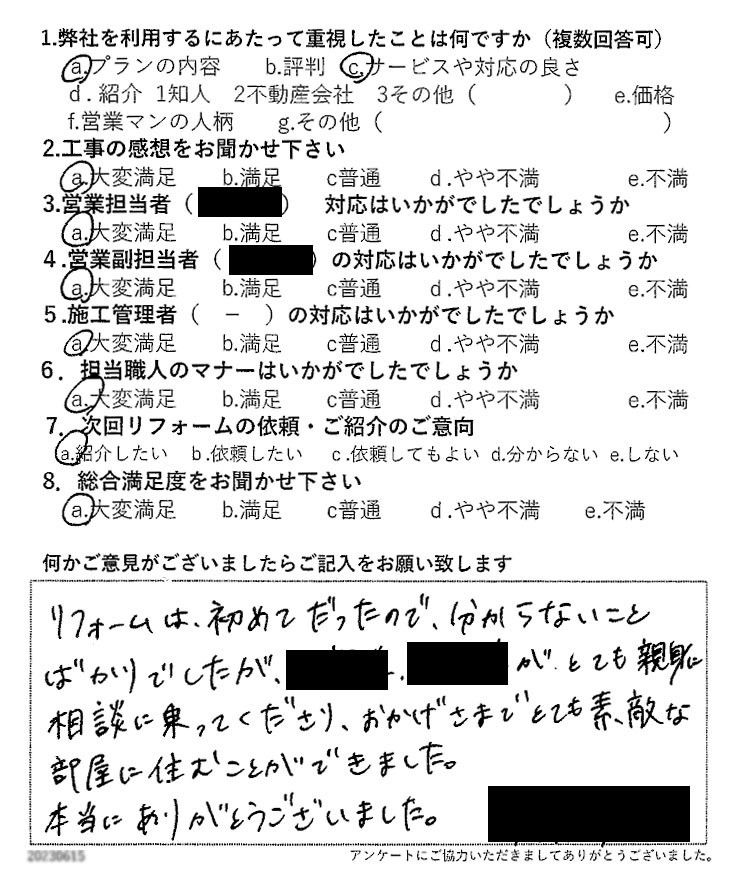 1.弊社を利用するにあたって重視したことは何ですか（複数回答可）
a.プランの内容　b.評判　c.サービスや対応の良さ
d．紹介 1知人 2不動産会社 3その他（　　　　）　e.価格
f.営業マンの人柄　g.その他（　　　　　　　　　　　　）
2.工事の感想をお聞かせ下さい
a.大変満足　b.満足　c普通　d.やや不満　e.不満
3.営業担当者（　　　）　対応はいかがでしたでしょうか
a.大変満足　b.満足　c普通　d.やや不満　e.不満
4.営業副担当者（　　　）の対応はいかがでしたでしょうか
a.大変満足　b.満足　c普通　d.やや不満　e.不満
5.施工管理者（　－　）の対応はいかがでしたでしょうか
a.大変満足　b.満足　c普通　d.やや不満　e.不満
6．担当職人のマナーはいかがでしたでしょうか
a.大変満足　b.満足　c普通　d.やや不満　e.不満
7．次回リフォームの依頼・ご紹介のご意向
a.紹介したい　b.依頼したい　c.依頼してもよい　d.分からない　e.しない
8．総合満足度をお聞かせ下さい
a.大変満足　b.満足　c普通　d.やや不満　e.不満
何かご意見がございましたらご記入をお願い致します
リフォームは、初めてだったので、分からないこと
ばかりでしたが、　　　、　　　が、とても親身に
相談に乗ってくださり、おかげさまでとても素敵な
部屋に住むことができました。
本当にありがとうございました。
20230615
アンケートにご協力いただきましてありがとうございました。